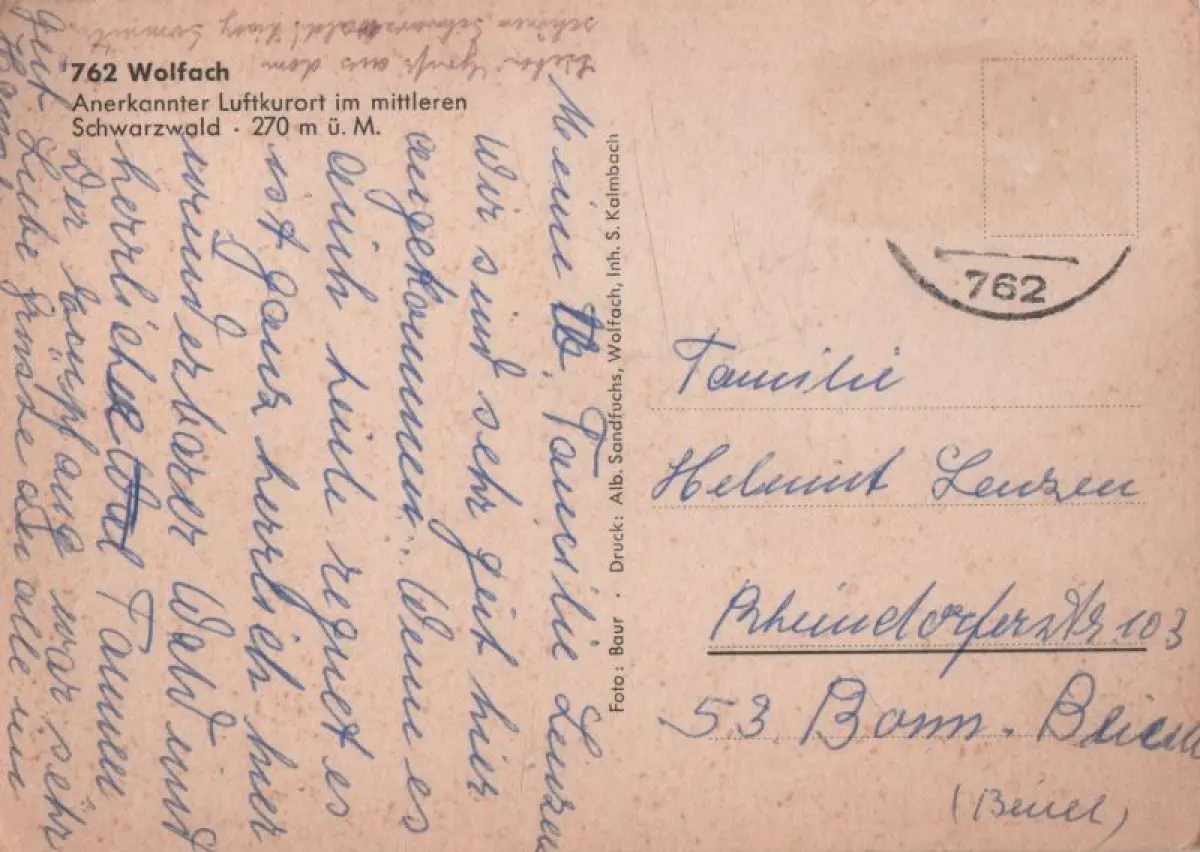 762 Wolfach
Anerkannter Luftkurort im mittleren
Schwarzwald · 270 m ü. M.
Meine lb. Familie Lenzen
Wir sind sehr gut hier
angekommen. Wenn es
auch heute regnet es
ist ganz herrlich hier
wunderbarer Wald und
herrliche Tannen
Der Empfang war sehr
gut. Liebe Grüsse an alle
aus dem
schönen Schwarzwald!
Foto: Baur · Druck: Alb. Sandfuchs, Wolfach, Inh. S. Kalmbach
762
Familie
Helmut Lenzen
Rheindorferstr 103
53 Bonn-Beuel
(Beuel)